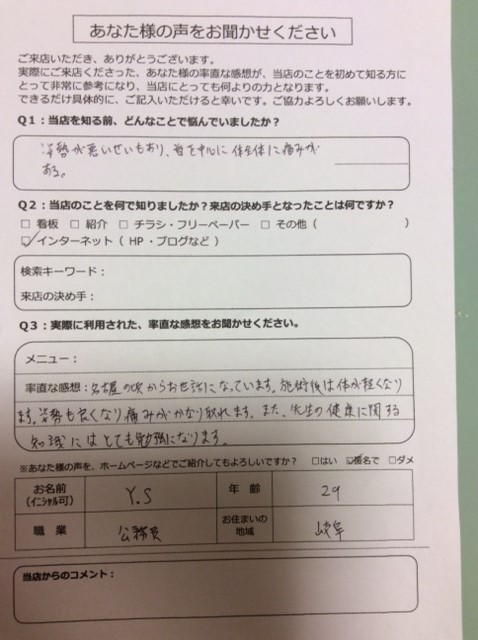 あなた様の声をお聞かせください
ご来店いただき、ありがとうございます。
実際にご来店くださった、あなた様の率直な感想が、当店のことを初めて知る方に
とって非常に参考になり、当店にとっても何よりの力となります。
できるだけ具体的に、ご記入いただけると幸いです。ご協力よろしくお願いします。
Q1：当店を知る前、どんなことで悩んでいましたか？
姿勢が悪いせいもあり、首を中心に体全体に痛みが
ある。
Q2：当店のことを何で知りましたか？来店の決め手となったことは何ですか？
□ 看板 □ 紹介 □ チラシ・フリーペーパー □ その他（ ）
☑ インターネット（ HP・ブログなど ）
検索キーワード：
来店の決め手：
Q3：実際に利用された、率直な感想をお聞かせください。
メニュー：
率直な感想：名古屋の頃からお世話になっています。施術後は体が軽くなり
ます。姿勢も良くなり痛みがかなり取れます。また、先生の健康に関する
知識にはとても勉強になります。
※あなた様の声を、ホームページなどでご紹介してもよろしいですか？ □はい ☑匿名で □ダメ
お名前 Y.S 年 齢 29
（イニシャル可）
職 業 公務員 お住まいの 岐阜
地域
当店からのコメント：